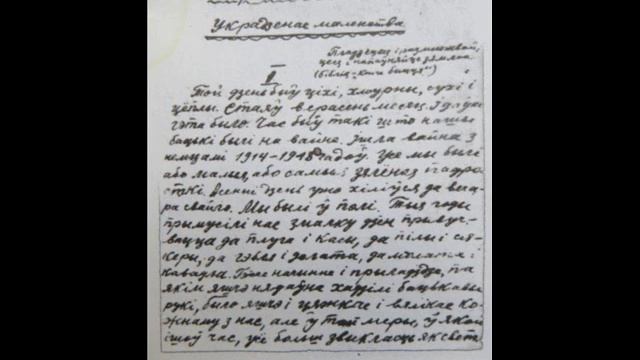 Украдзенае маленства
Пладзецеся і размнажай-
цеся і напаўняйце зямлю
(біблія "Кніга быцця")
I
Той дзень быў ціхі, хмурны, сухі і
цёплы. Стаяў верасень месяц. І даўно
гэта было. Час быў такі што нашы
бацькі былі на вайне. Ішла вайна з
немцамі 1914-1918 гадоў. Усе мы былі
або малыя, або самыя зялёныя падра-
сткі. Асенні дзень ужо хіліўся да веча-
ра свайго. Мы былі ў полі. Тыя годы
прымусілі нас змалку дзён прывуч-
вацца да плуга і касы, да пілы і ся-
керы, да гэбля і долата, да молата і
кавадла. Тое начынне і прыладдзе, па
якім яшчэ нядаўна хадзілі бацькавы
рукі, было яшчэ і цяжкое і вялікае ко-
жнаму з нас, але ў той меры, ў якой
ішоў час, усё больш звыклася як свет